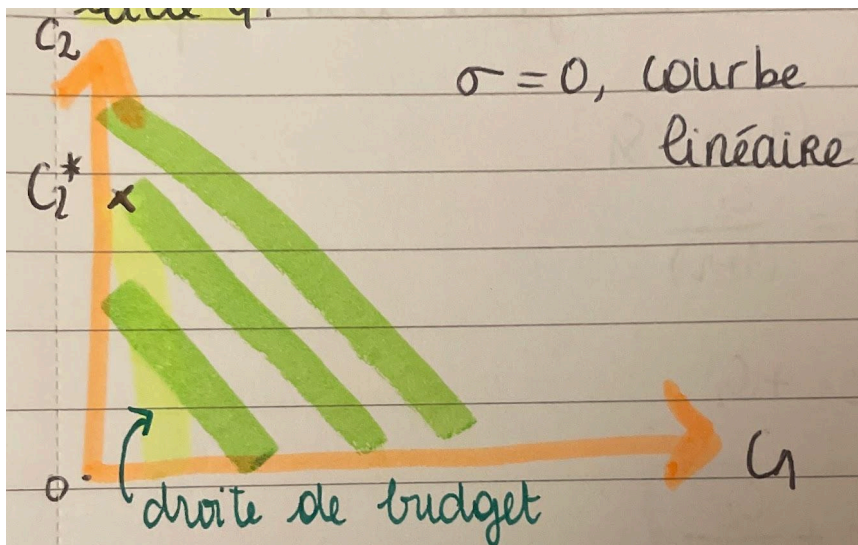 C₂
σ = 0, courbe
linéaire
C₂*
0
droite de budget
C₁